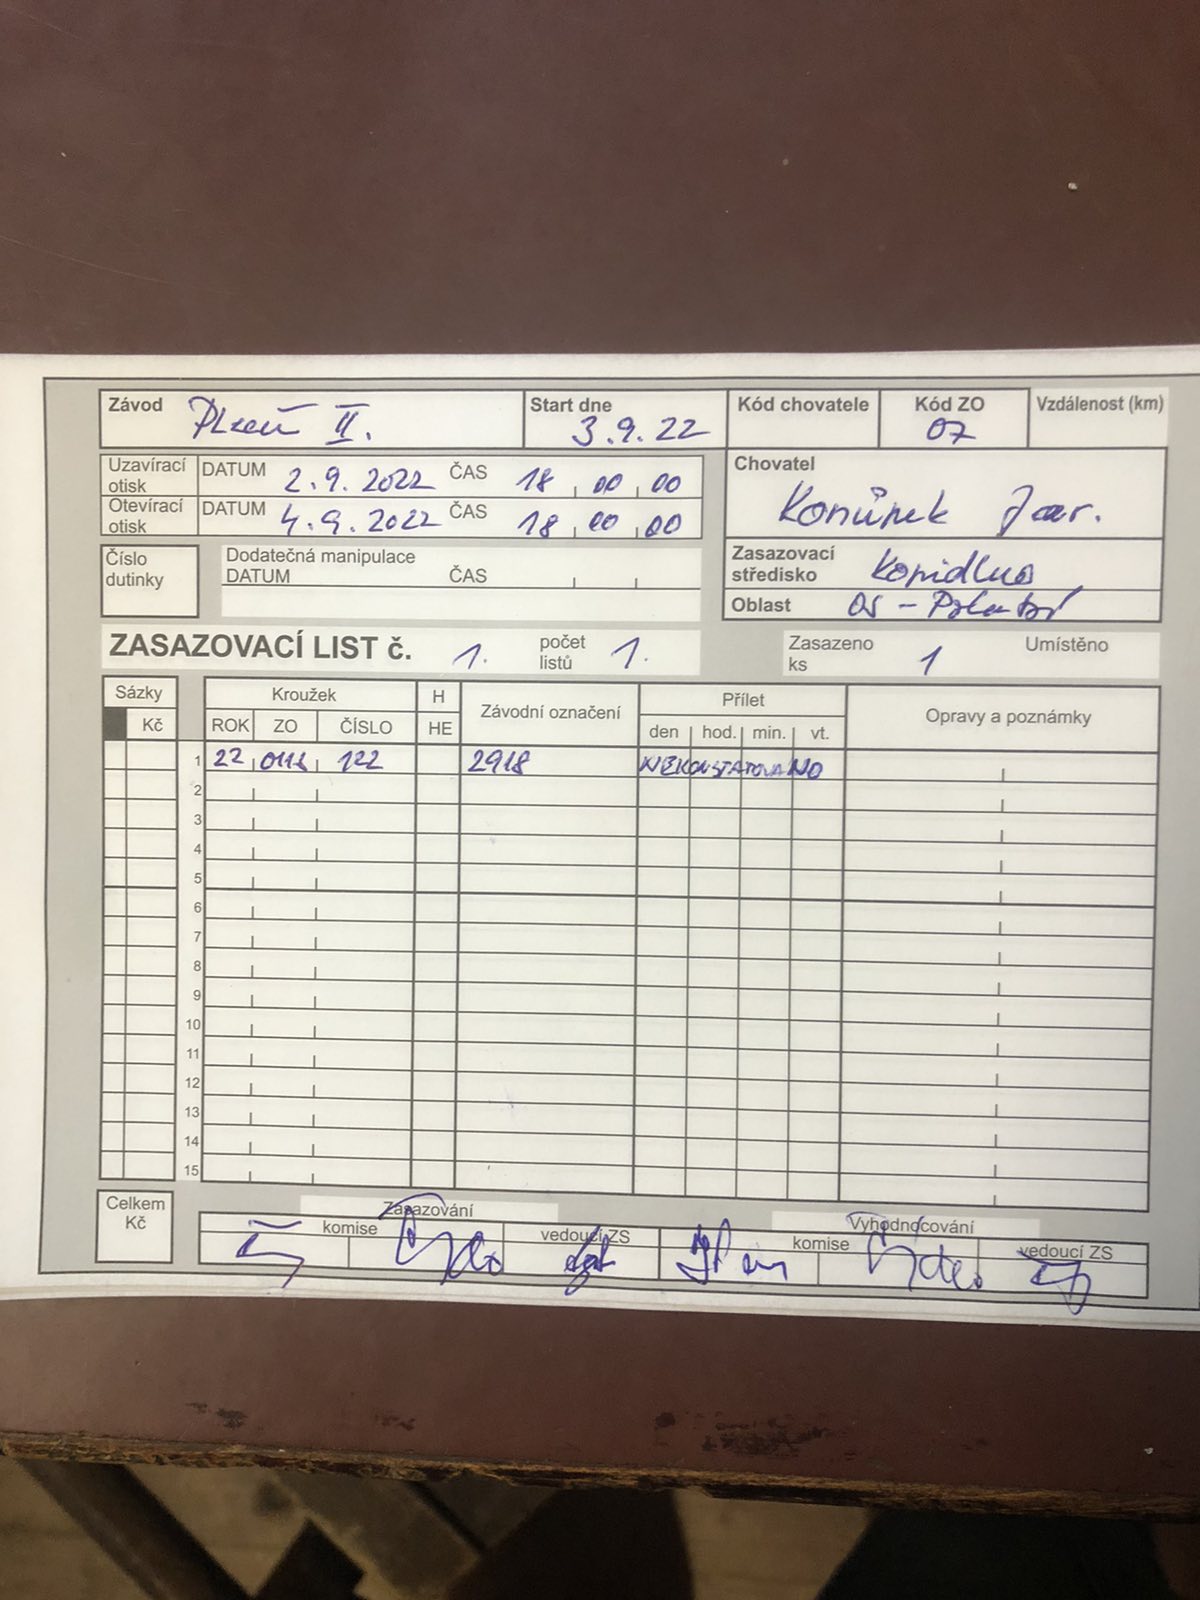 Závod Plzeň II. Start dne 3.9.22 Kód chovatele Kód ZO 07 Vzdálenost (km)
Uzavírací otisk DATUM 2.9.2022 ČAS 18 00 00
Otevírací otisk DATUM 4.9.2022 ČAS 18 00 00
Chovatel
Konůpek Jar.
Číslo dutinky
Dodatečná manipulace
DATUM ČAS
Zasazovací středisko Kopidlno
Oblast OS -
ZASAZOVACÍ LIST č. 1. počet listů 1. Zasazeno ks 1 Umístěno
Sázky Kroužek H Závodní označení Přílet Opravy a poznámky
Kč ROK ZO ČÍSLO HE den hod. min. vt.
1 22 122 2918 NEKONSTATOVANO
2
3
4
5
6
7
8
9
10
11
12
13
14
15
Celkem Kč
Zasazování Vyhodnocování
komise vedoucí ZS komise vedoucí ZS